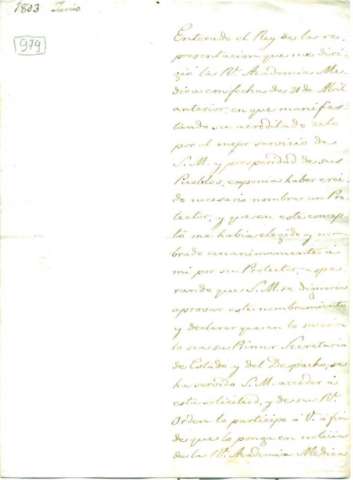 1803 Junio
979
Enterado el Rey de la re
presentacion que me diri
gió la Rl. Academia Me
dica con fecha de 21 de Abril
anterior, en que manifes
tando su acreditado celo
por el mejor servicio de
S. M. y prosperidad de sus
Pueblos, exponia haber crei
do necesario nombrar un Pro
tector, y que en este concep
to me habia elegido y nom
brado unanimemente á
mi por su Protector, espe
rando que S. M. se dignaria
aprovar este nombramiento
y declarar que en lo sucesi
vo sea su Primer Secretario
de Estado y del Despacho, se
ha servido S. M. acceder á
esta solicitud, y de su Rl.
Orden lo participo á V. á fin
de que lo ponga en noticia
de la Rl. Academia Medica